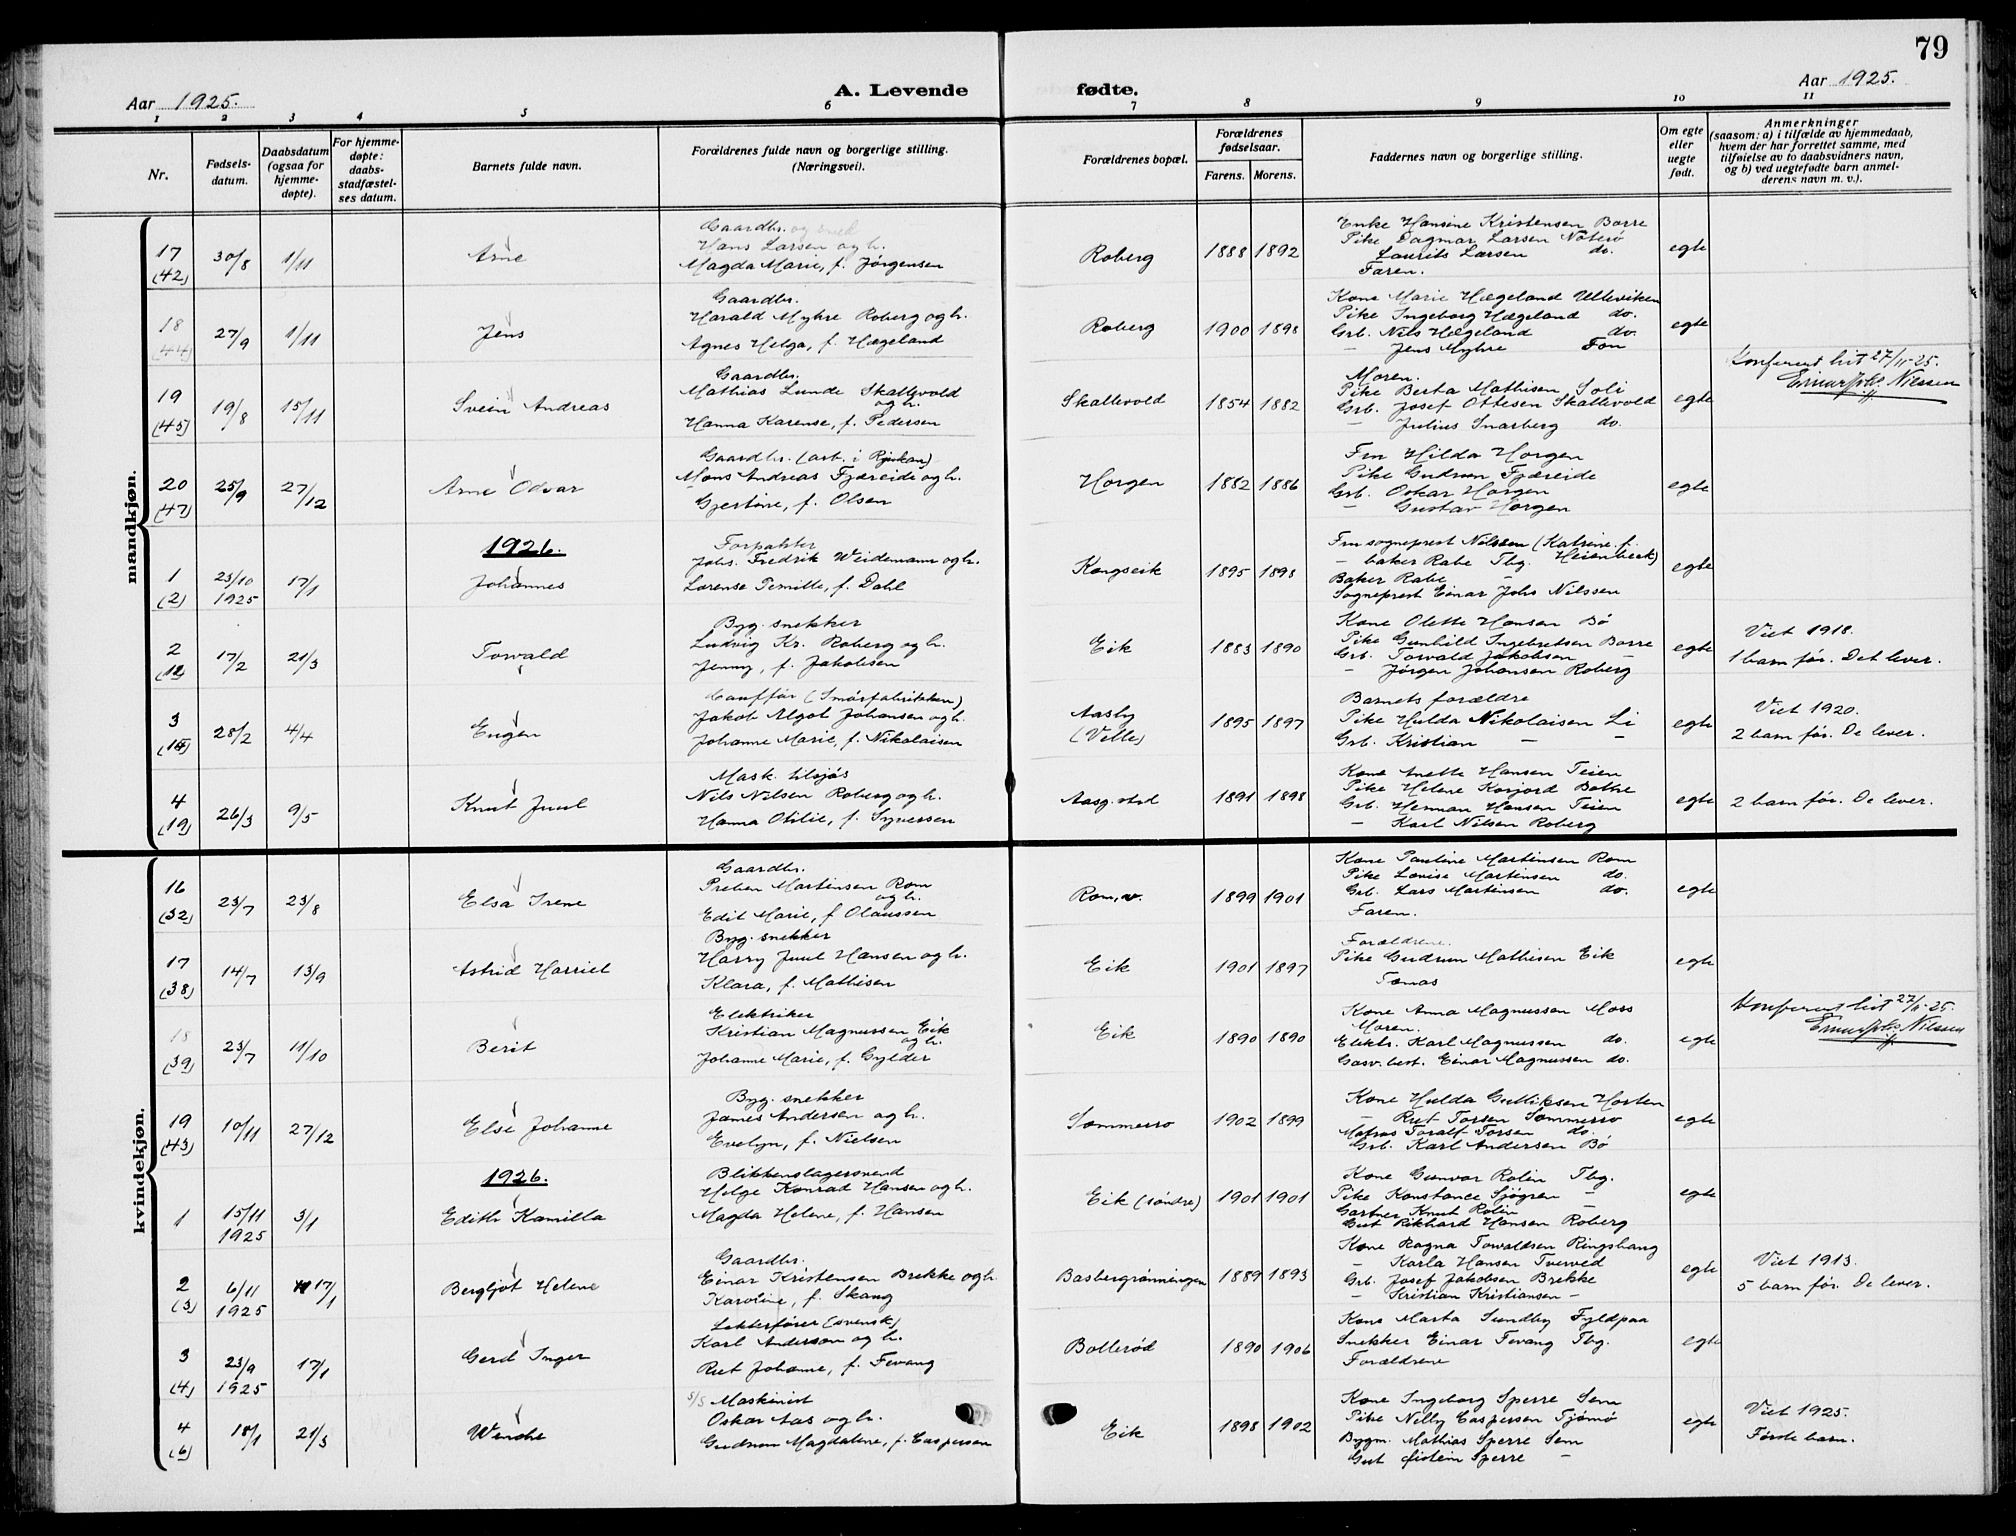 79
Aar 1925. A. Levende fødte. Aar 1925.
1 2 3 4 5 6 7 8 9 10 11
Nr.
Fødsels-
datum.
Daabsdatum
(ogsaa for
hjemme-
døpte).
For hjemme-
døpte:
daabs-
stadfæstel-
ses datum.
Barnets fulde navn.
Forældrenes fulde navn og borgerlige stilling.
(Næringsvei).
Forældrenes bopæl.
Forældrenes
fødselsaar.
Farens. Morens.
Faddernes navn og borgerlige stilling.
Om egte
eller
uegte
født.
Anmerkninger
(saasom: a) i tilfælde av hjemmedaab,
hvem der har forrettet samme, med
tilføielse av to daabsvidners navn,
og b) ved uegtefødte barn anmel-
derens navn m. v.).
mandkjøn.
17
(42)
30/8
1/11
Arne
Gaardbr. og smed
Hans Larsen og h.
Magda Marie, f. Jørgensen
Roberg
1888 1892
Enke Hansine Kristensen Borre
Pike Dagmar Larsen Nøterø
Laurits Larsen do.
Faren.
egte
18
(44)
27/9
1/11
Jens
Gaardbr.
Harald Myhre Roberg og h.
Agnes Helga, f. Hægeland
Roberg
1900 1898
Kone Marie Hægeland Ulleviken
Pike Ingeborg Hægeland do.
Grb. Nils Hægeland do.
— Jens Myhre Fon
egte
19
(45)
19/8
15/11
Svein Andreas
Gaardbr.
Mathias Lunde Skallevold
og h.
Hanna Karense, f. Pedersen
Skallevold
1854 1882
Moren.
Pike Berta Mathisen Soli
Grb. Josef Ottesen Skallevold
— Julius Snarberg do.
egte
Konferert hit 27/11-25.
Einar Johs. Nilssen
20
(47)
25/9
27/12
Arne Odvar
Gaardbr. (arb. i Rjukan)
Mons Andreas Fjæreide og h.
Gjertine, f. Olsen
Horgen
1882 1886
Fru Hilda Horgen
Pike Gudrun Fjæreide
Grb. Oskar Horgen
— Gustav Horgen
egte
1926.
1
(2)
23/10
1925
17/1
Johannes
Forpakter
Johs. Fredrik Weidemann og h.
Lorense Pernille, f. Dahl
Kongseik
1895 1898
Fru sogneprest Nilssen (Katrine f.
— baker Rabe Tbg. Heienbeck)
Baker Rabe —
Sogneprest Einar Johs Nilssen
egte
2
(12)
17/2
21/3
Torvald
Byg. snekker
Ludvig Kr. Roberg og h.
Jenny, f. Jakobsen
Eik
1883 1890
Kone Olette Hansen Bø
Pike Gunhild Ingebretsen Borre
Grb. Torvald Jakobsen —
— Jørgen Johansen Roberg
egte
Viet 1918.
1 barn før. Det lever.
3
(15)
28/2
4/4
Eugen
Cauffør (Smørfabrikken)
Jakob Algot Johansen og h.
Johanne Marie, f. Nikolaisen
Aasly
(Velle)
1895 1897
Barnets forældre
Pike Hulda Nikolaisen Li
Grb. Kristian — —
egte
Viet 1920.
2 barn før. De lever.
4
(19)
26/3
9/5
Knut Juul
Mask. tilsjøs
Nils Nilsen Roberg og h.
Hanna Otilie, f. Syversen
Aasg. strl
1891 1898
Kone Anette Hansen Teien
Pike Helene Korjord Bothe
Grb. Herman Hansen Teien
— Karl Nilsen Roberg
egte
2 barn før. De lever.
kvindekjøn.
16
(32)
23/7
23/8
Elsa Irene
Gaardbr.
Preben Martinsen Rom
og h.
Edit Marie, f. Olaussen
Rom, v.
1899 1901
Kone Pauline Martinsen Rom
Pike Lovise Martinsen do.
Grb. Lars Martinsen do.
Faren.
egte
17
(38)
14/7
13/9
Astrid Harriet
Byg. snekker
Harry Juul Hansen og h.
Klara, f. Mathisen
Eik
1901 1897
Forældrene.
Pike Gudrun Mathisen Eik
Tomas
egte
18
(39)
23/7
11/10
Berit
Elektriker
Kristian Magnussen Eik
og h.
Johanne Marie, f. Gylder
Eik
1890 1890
Kone Anna Magnussen Moss
Moren.
Elektr. Karl Magnussen do.
Gasv. best. Einar Magnussen do.
egte
Konferert hit 27/11-25.
Einar Johs. Nilssen
19
(43)
10/11
27/12
Else Johanne
Byg. snekker
James Andersen og h.
Evelyn, f. Nielsen
Sommerro
1902 1899
Kone Hulda Gulliksen Horten
— Rut Torsen Sommerro
Matros Toralf Torsen do.
Grb. Karl Andersen Bø
egte
1926.
1
15/11
1925
3/1
Edith Kamilla
Blikkenslagersvend
Helge Konrad Hansen og h.
Magda Helene, f. Hansen
Eik (søndre)
1901 1901
Kone Gunvor Rolin Tbg.
Pike Konstance Sjögren —
Gartner Knut Rolin —
Gut Rikhard Hansen Roberg
egte
2
(3)
6/11
1925
17/1
Bergljot Helene
Gaardbr.
Einar Kristensen Brekke og h.
Karoline, f. Skaug
Basbergrønningen
1889 1893
Kone Ragna Torvaldsen Ringshaug
— Karla Hansen Tverved
Grb. Josef Jakobsen Brekke
— Kristian Kristiansen —
egte
Viet 1913.
5 barn før. De lever.
3
(4)
23/9
1925
17/1
Gerd Inger
Lekterfører (svensk)
Karl Anderson og h.
Rut Johanne, f. Fevang
Bollerød
1890 1906
Kone Marta Sundby Fyldpaa
Snekker Einar Fevang Tbg.
Forældrene
egte
4
(6)
18/1
21/3
Wenche
5/5 Maskinist
Oskar Aas og h.
Gudrun Magdalene, f. Caspersen
Eik
1898 1902
Kone Ingeborg Sperre Sem
Pike Nelly Caspersen Tjømø
Bygm. Mathias Sperre Sem
Gut Øistein Sperre —
egte
Viet 1925.
Første barn.